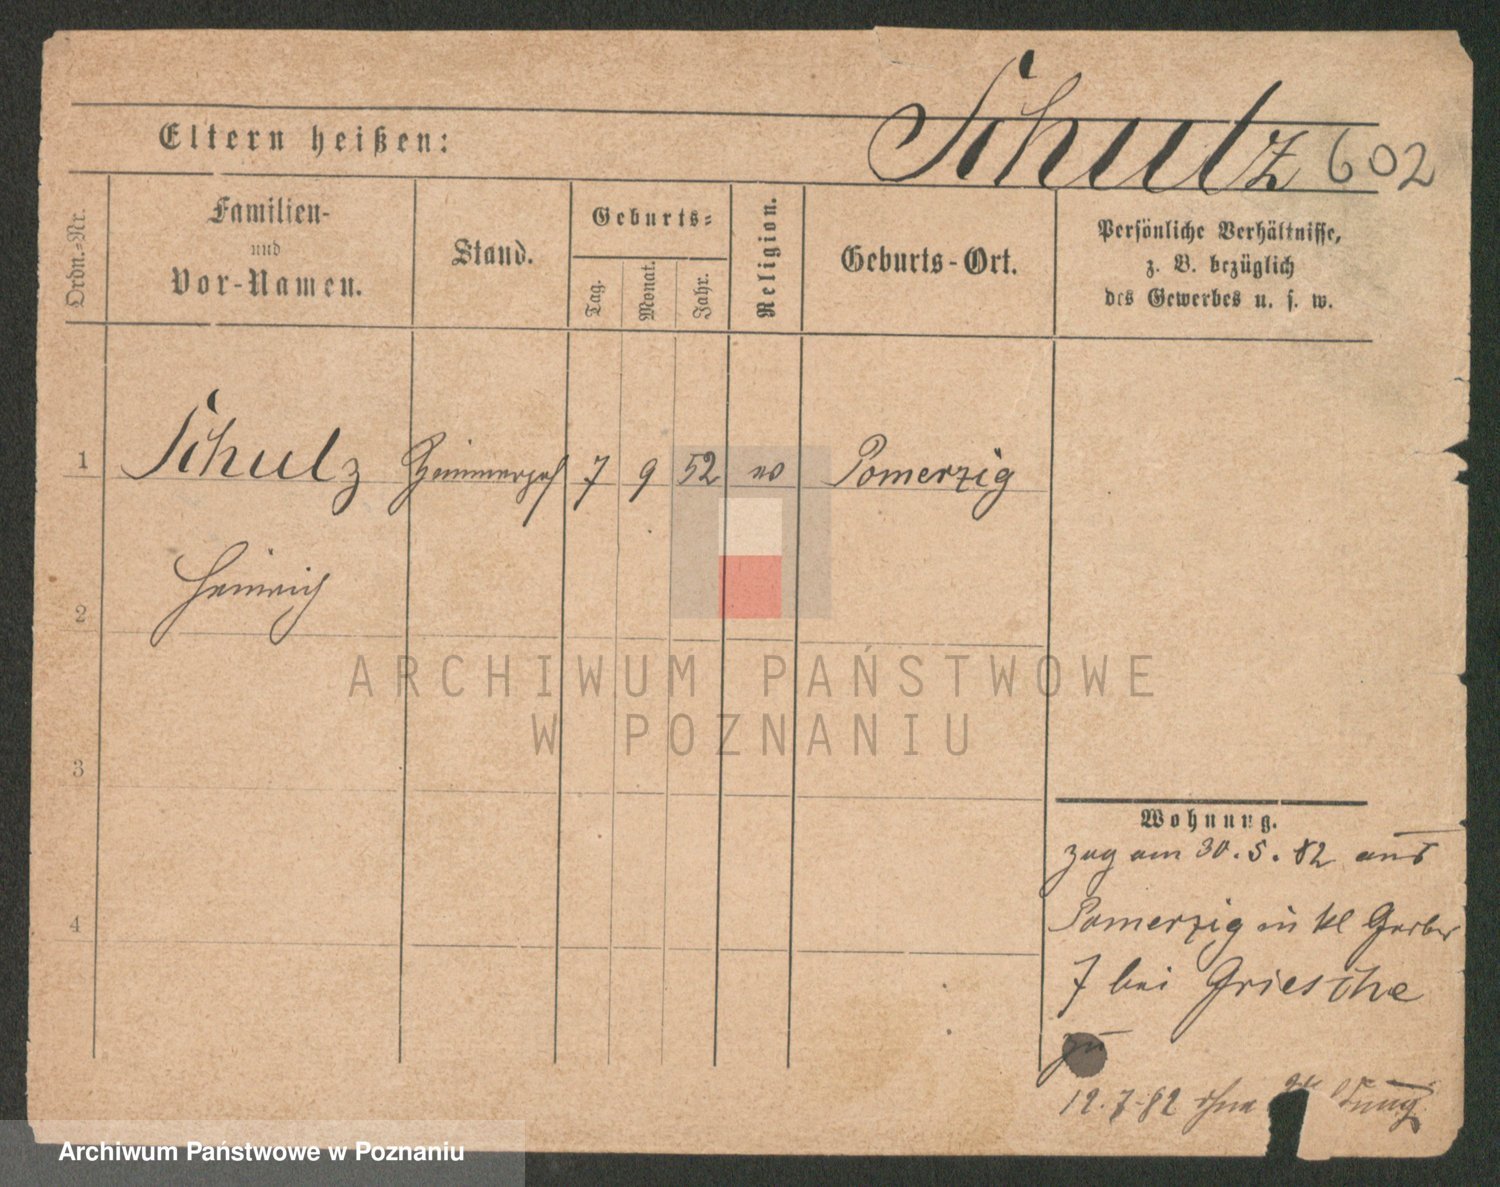 Schulz 602
Eltern heißen:
Ordn.-Nr.
Familien-
und
Vor-Namen.
Stand.
Geburts-
Tag.
Monat.
Jahr.
Religion.
Geburts-Ort.
Persönliche Verhältnisse,
z. B. bezüglich
des Gewerbes u. s. w.
1 Schulz 7 9 52 Pomerzig
Heinrich
2
3
4
Wohnung.
zug am 30.5.82 aus
Pomerzig in kl Gerber
7 bei Griesche
zu
12.7.82 ohne
ARCHIWUM PAŃSTWOWE
W POZNANIU
Archiwum Państwowe w Poznaniu